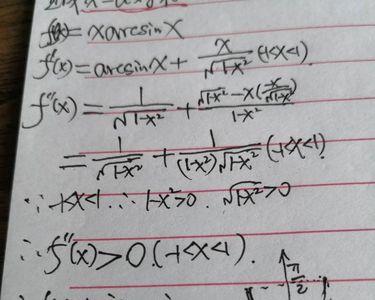 f(x)=xarcsinx
f'(x)=arcsinx+x/√(1-x²) (-1<x<1)
f''(x)=1/√(1-x²)+(√(1-x²)-x(x/√(1-x²)))/(1-x²)
=1/√(1-x²)+1/((1-x²)√(1-x²)) (-1<x<1)
∵-1<x<1 ∴ 1-x²>0. √(1-x²)>0
∴f''(x)>0.(-1<x<1).
π/2